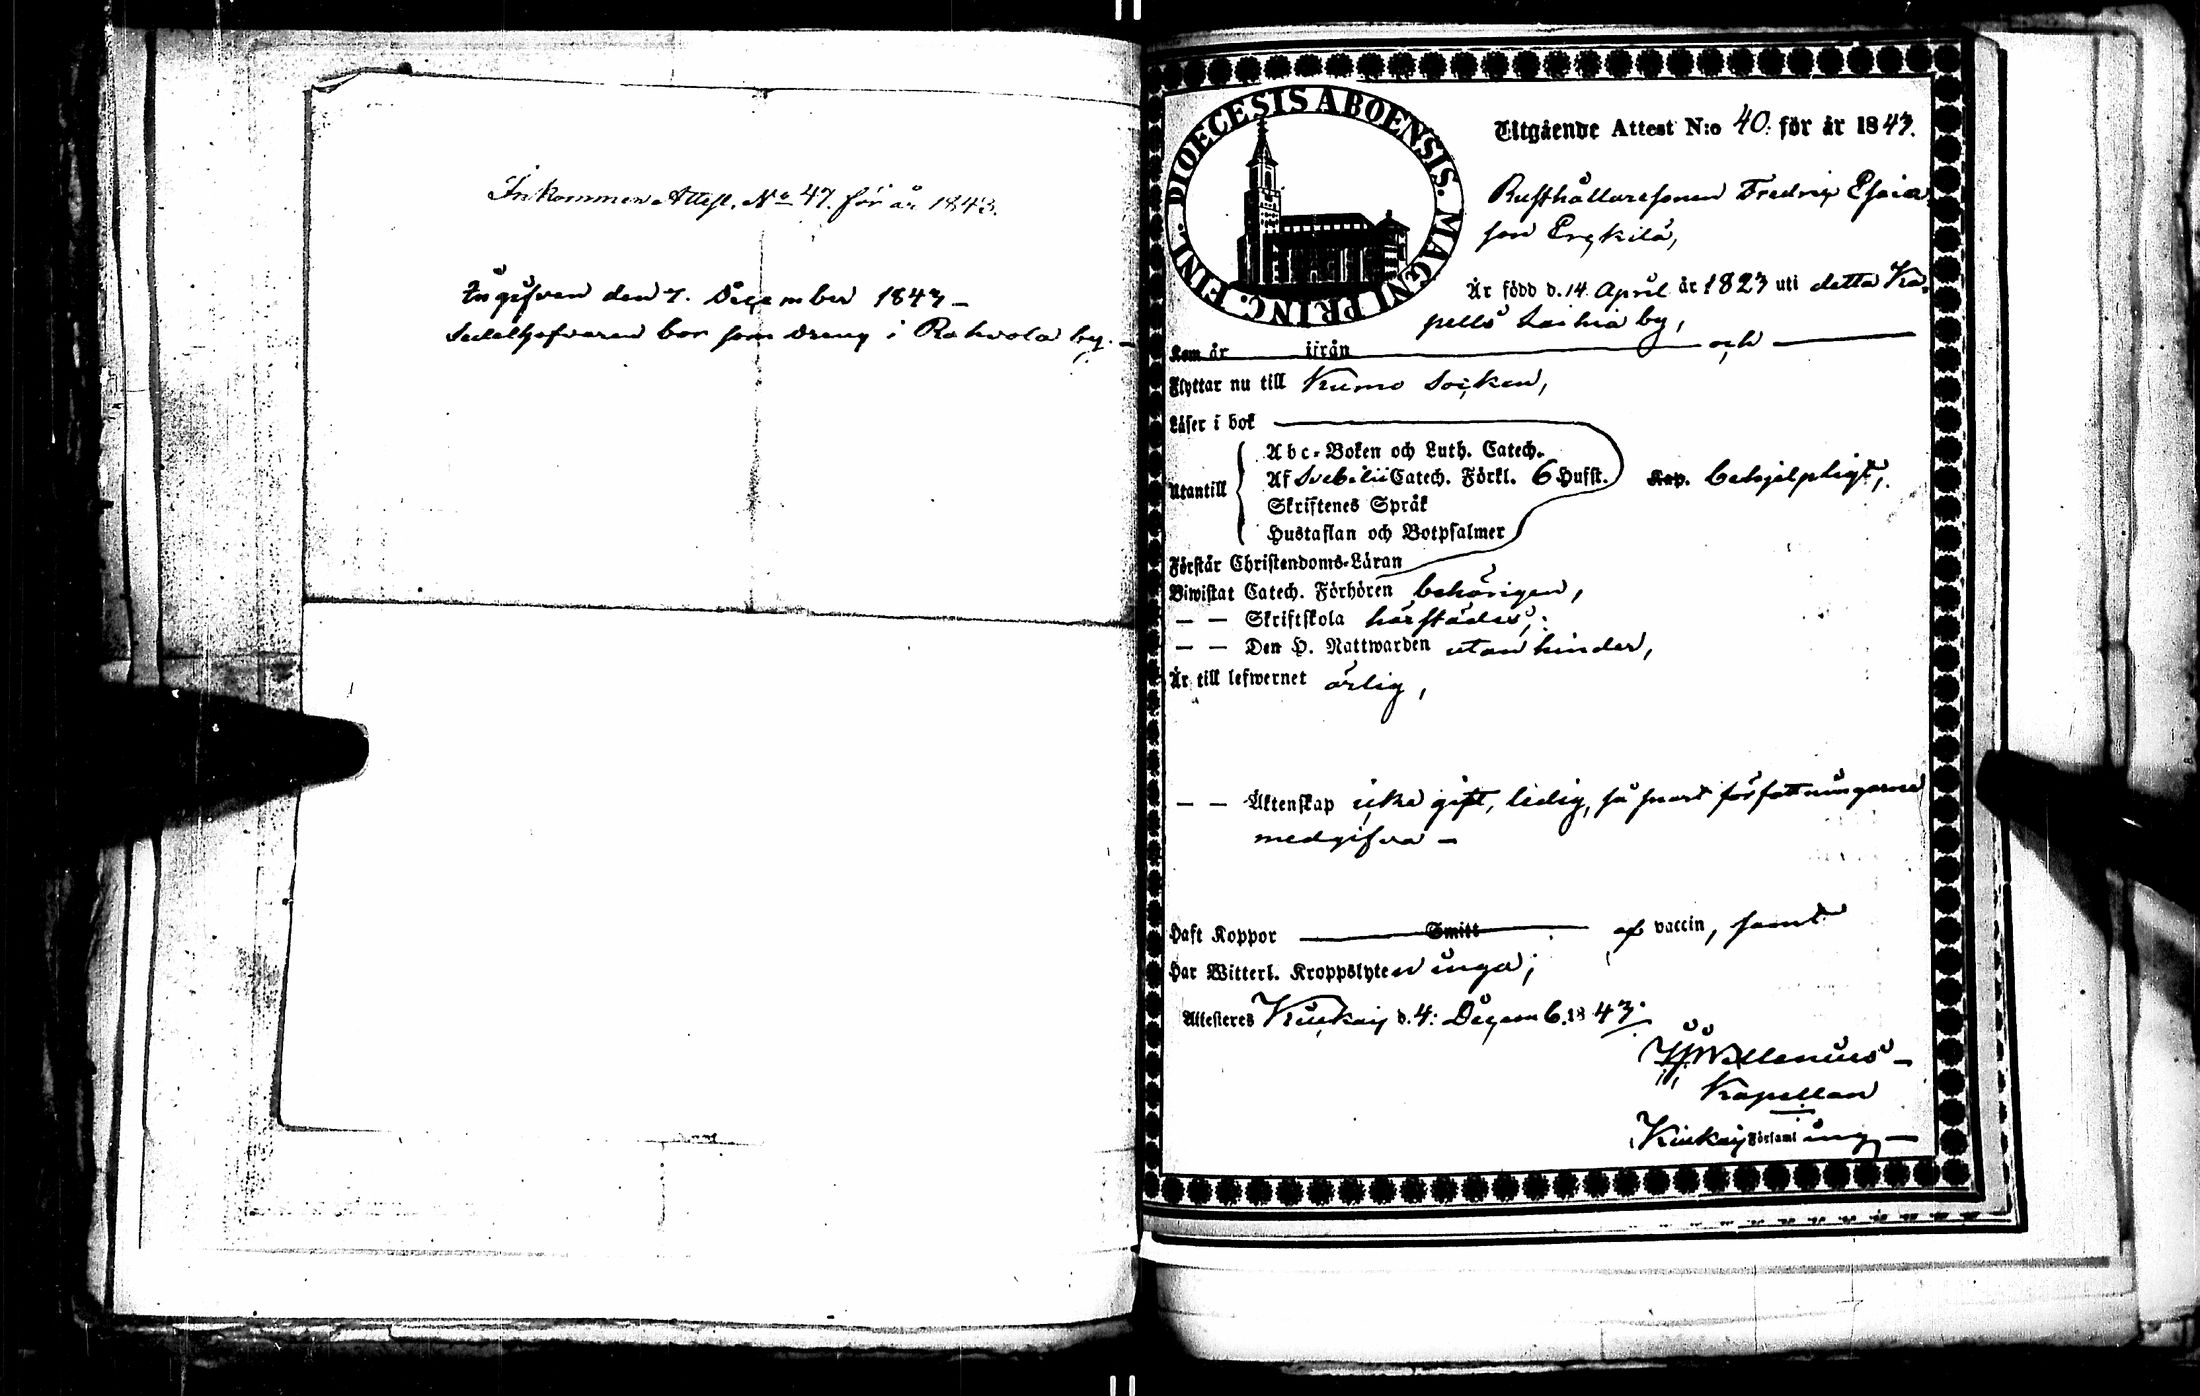 Inkommen Attest. No 47. för år 1843.
Ingifven den 7. December 1843 –
Sedelhafvaren bor som dreng i Rahvola by. –
FINL. DIOECESIS ABOENSIS. MAGNI PRINC.
Utgående Attest N:o 40. för år 1843.
Rusthållaresonen Fredrix Esaia
son Erkilä,
Är född d. 14 April år 1823 uti detta Ka-
pells by,
Kom år ifrån och
Flyttar nu till Kumo Socken,
Läser i bok
Abc-Boken och Luth. Catech.
Utantill
Af Svebilii Catech. Förkl. 6 Hufst. Kap. behjelpligt,
Skriftenes Språk
Hustaflan och Botpsalmer
Förstår Christendoms-Läran
Biwistat Catech. Förhören behörigen,
— — Skriftskola härstädes,
— — Den H. Nattwarden utan hinder,
Är till lefwernet ärlig,
— — Äktenskap icke gift, ledig, så snart författningarne
medgifva –
Haft Koppor Smitt af vaccin, samt
Har Witterl. Kroppslyten inga;
Attesteres Kiukais d. 4: Decemb. 1843.
Wallenius –
Kapellan
Kiukais Församling –